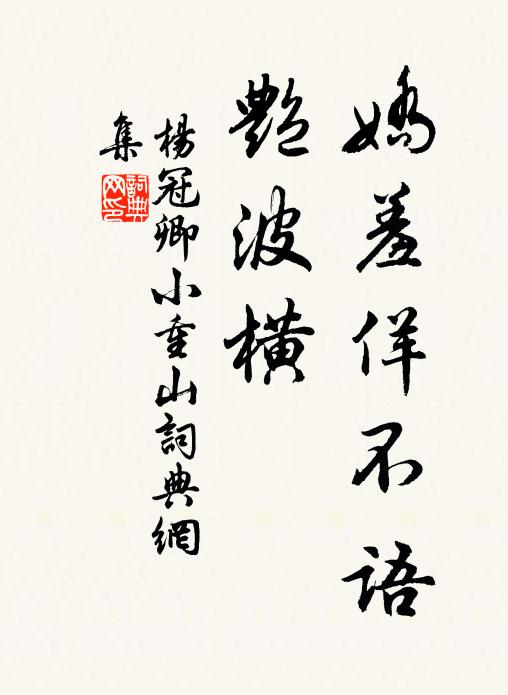 嬌羞佯不語
艷波橫
楊冠卿小重山詞典網
集
詞典
網印